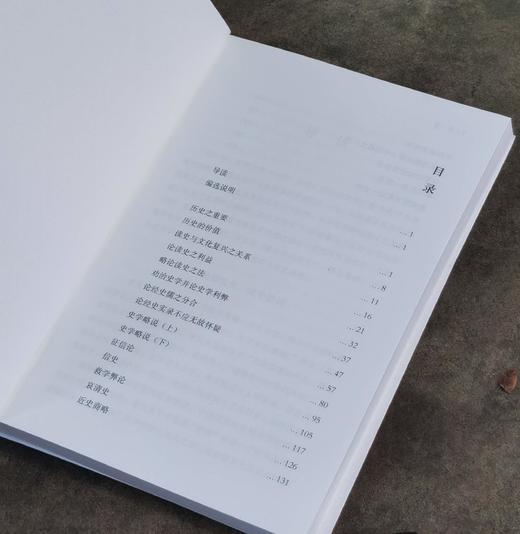 目录
导读 ... 1
编选说明 ... 1
历史之重要 ... 1
历史的价值 ... 8
读史与文化复兴之关系 ... 11
论读史之利益 ... 16
略论读史之法 ... 21
劝治史学并论史学利弊 ... 32
论经史儒之分合 ... 37
论经史实录不应无故怀疑 ... 47
史学略说（上） ... 57
史学略说（下） ... 80
征信论 ... 95
信史 ... 105
救学弊论 ... 117
哀清史 ... 126
近史商略 ... 131